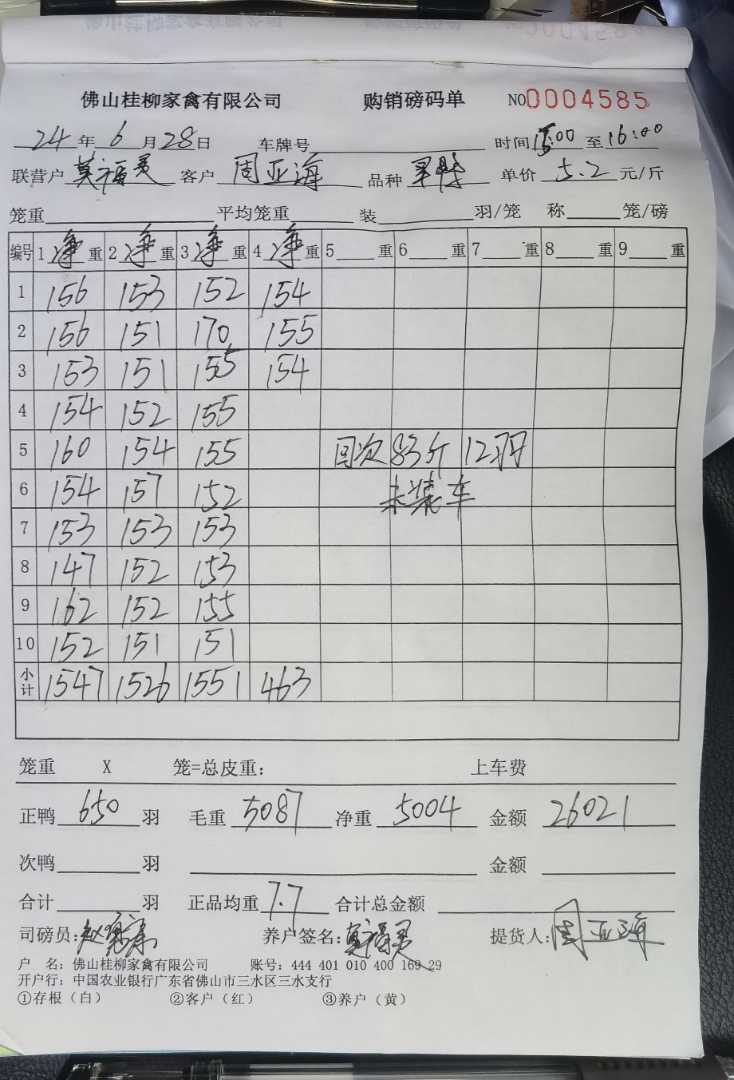 佛山桂柳家禽有限公司 购销磅码单 NO0004585
24年6月28日 车牌号 时间15:00至16:00
联营户 客户 周亚海 品种 单价 5.2 元/斤
笼重 平均笼重 装 羽/笼 称 笼/磅
编号 1净重 2净重 3净重 4净重 5 重 6 重 7 重 8 重 9 重
1 156 153 152 154
2 156 151 170 155
3 153 151 155 154
4 154 152 155
5 160 154 155 回次 83斤 12羽
6 154 157 152 未装车
7 153 153 153
8 147 152 153
9 162 152 155
10 152 151 151
小计 1547 1526 1551 463
笼重 X 笼=总皮重: 上车费
正鸭 650 羽 毛重 5087 净重 5004 金额 26021
次鸭 羽 金额
合计 羽 正品均重 7.7 合计总金额
司磅员: 养户签名: 提货人: 周亚海
户 名: 佛山桂柳家禽有限公司 账号: 444 401 010 400 169 29
开户行: 中国农业银行广东省佛山市三水区三水支行
①存根(白) ②客户(红) ③养户(黄)